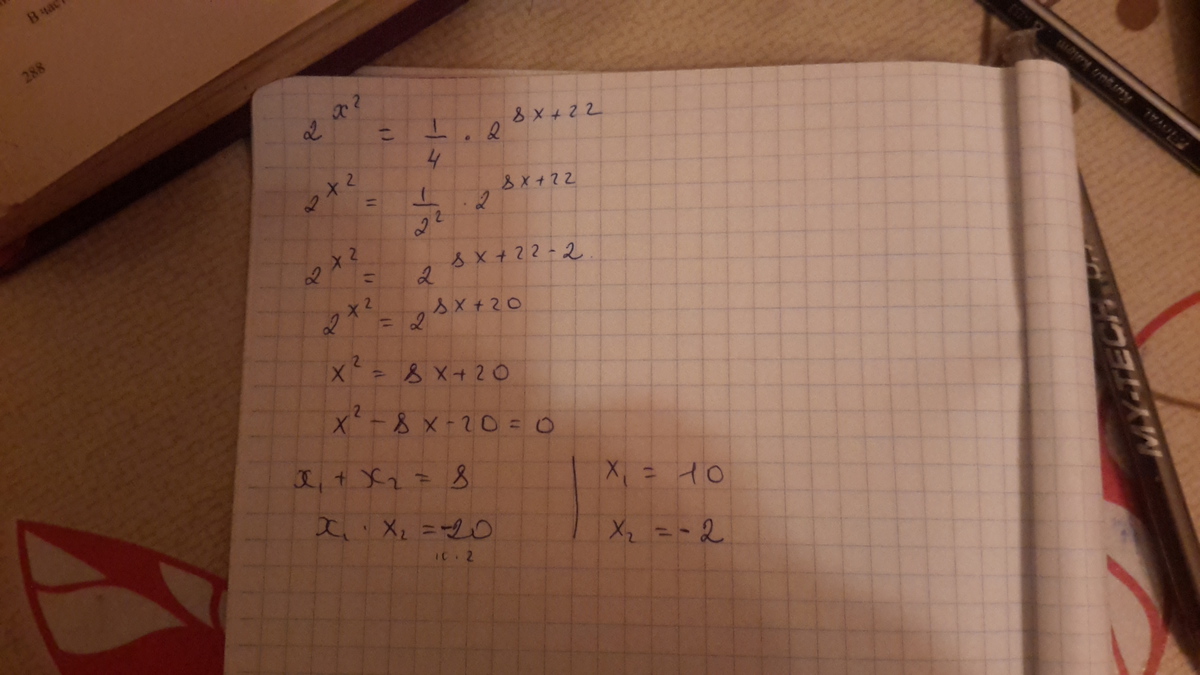 В част
288
2^{x^2} = \frac{1}{4} \cdot 2^{8x+22}
2^{x^2} = \frac{1}{2^2} \cdot 2^{8x+22}
2^{x^2} = 2^{8x+22-2}
2^{x^2} = 2^{8x+20}
x^2 = 8x+20
x^2 - 8x - 20 = 0
x_1 + x_2 = 8
x_1 \cdot x_2 = -20
x_1 = 10
x_2 = -2
MY-TECH